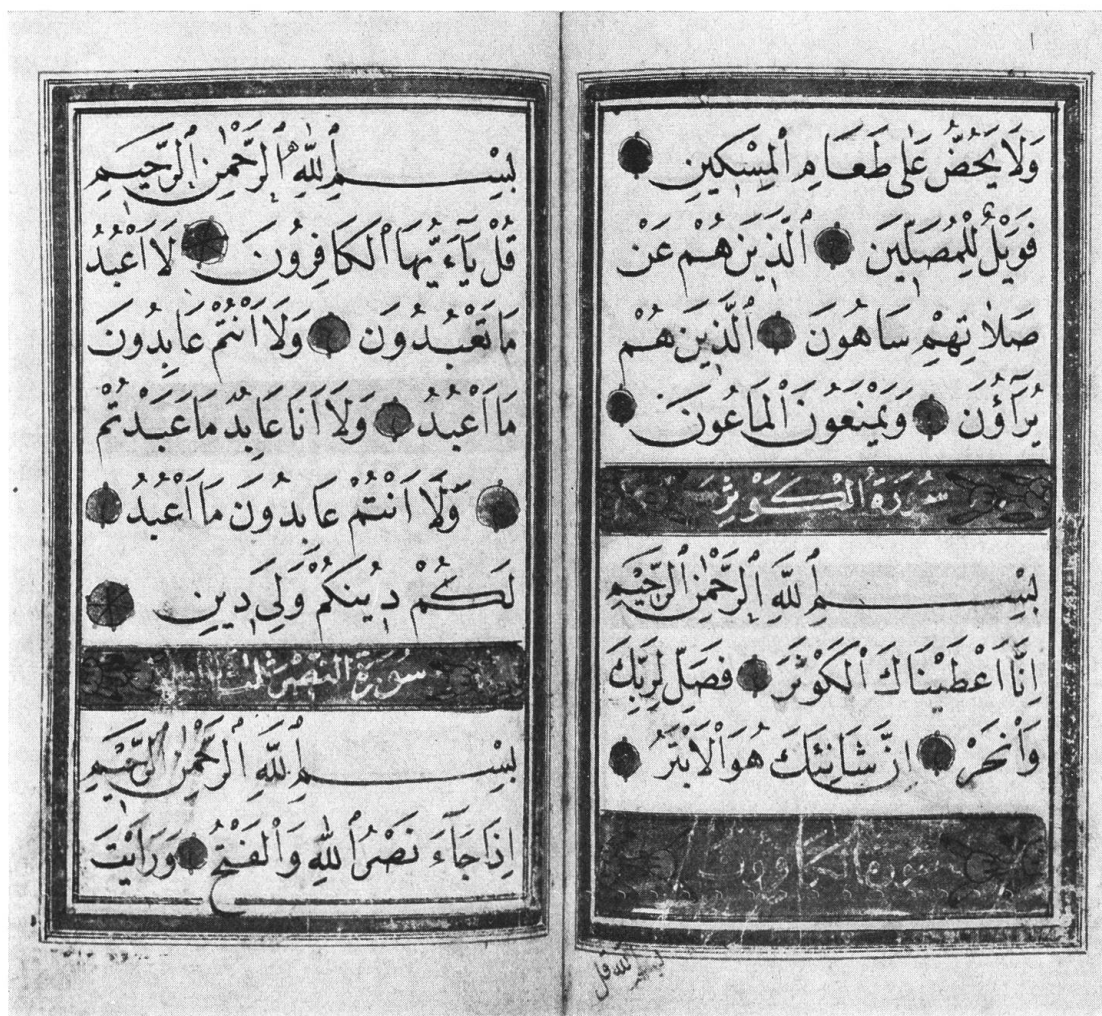 وَلَا يَحُضُّ عَلٰى طَعَامِ ٱلْمِسْكِينِ
فَوَيْلٌ لِلْمُصَلِّينَ ٱلَّذِينَ هُمْ عَنْ
صَلَاتِهِمْ سَاهُونَ ٱلَّذِينَ هُمْ
يُرَآؤُنَ وَيَمْنَعُونَ ٱلْمَاعُونَ
سُورَةُ الْكَوْثَرِ
بِسْمِ ٱللّٰهِ ٱلرَّحْمٰنِ ٱلرَّحِيمِ
اِنَّا اَعْطَيْنَاكَ ٱلْكَوْثَرَ فَصَلِّ لِرَبِّكَ
وَٱنْحَرْ اِنَّ شَانِئَكَ هُوَ ٱلْاَبْتَرُ
سورة الكافرون
بسم الله قل
بِسْمِ ٱللّٰهِ ٱلرَّحْمٰنِ ٱلرَّحِيمِ
قُلْ يَآءَيُّهَا ٱلْكَافِرُونَ لَا اَعْبُدُ
مَا تَعْبُدُونَ وَلَا اَنْتُمْ عَابِدُونَ
مَا اَعْبُدُ وَلَا اَنَا عَابِدٌ مَا عَبَدْتُمْ
وَلَا اَنْتُمْ عَابِدُونَ مَا اَعْبُدُ
لَكُمْ دِينُكُمْ وَلِيَ دِينِ
سورة النصر ثلث
بِسْمِ ٱللّٰهِ ٱلرَّحْمٰنِ ٱلرَّحِيمِ
اِذَا جَآءَ نَصْرُ ٱللّٰهِ وَٱلْفَتْحُ وَرَاَيْتَ